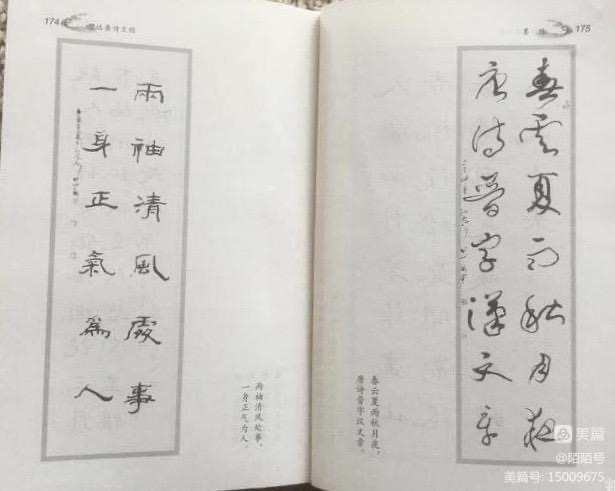 174
诗文稿
兩袖清風處事
一身正氣為人
两袖清风处事,
一身正气为人。
175
墨
春云夏雨秋月夜
唐诗晋字漢文章
春云夏雨秋月夜,
唐诗晋字汉文章。
美篇
@陌陌号
美篇号: 15009675